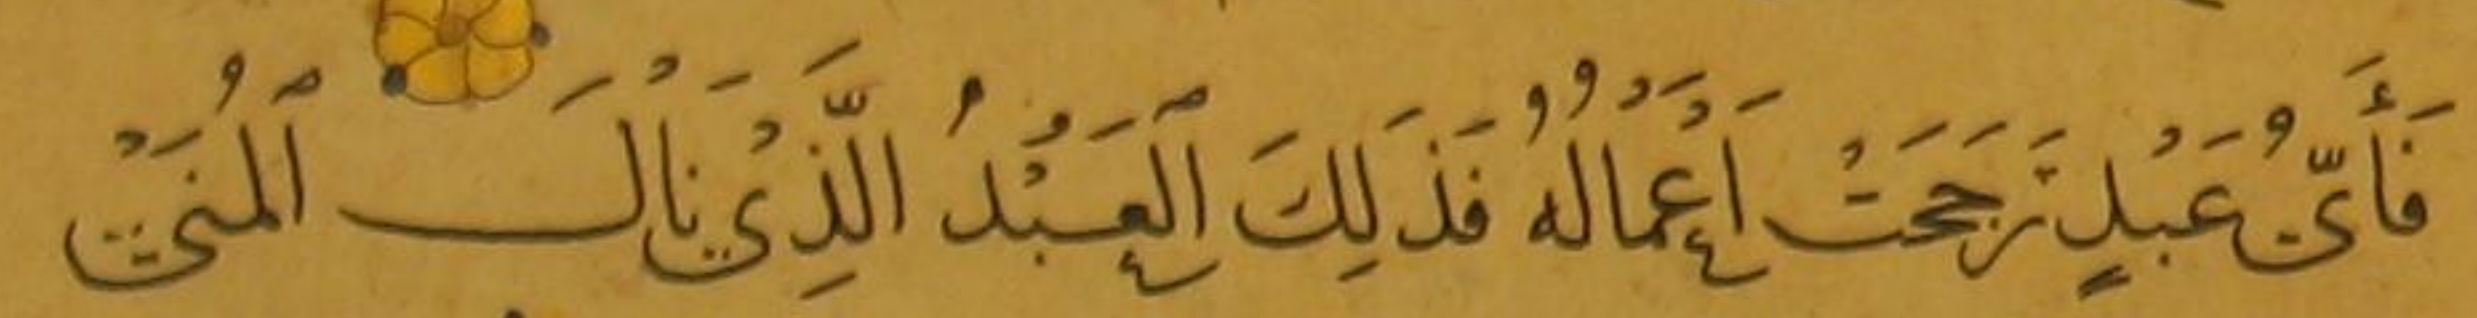 فَأَيُّ عَبْدٍ رَجَحَتْ أَعْمَالُهُ فَذَلِكَ ٱلْعَبْدُ الَّذِيْ نَالَ ٱلْمُنَيْ